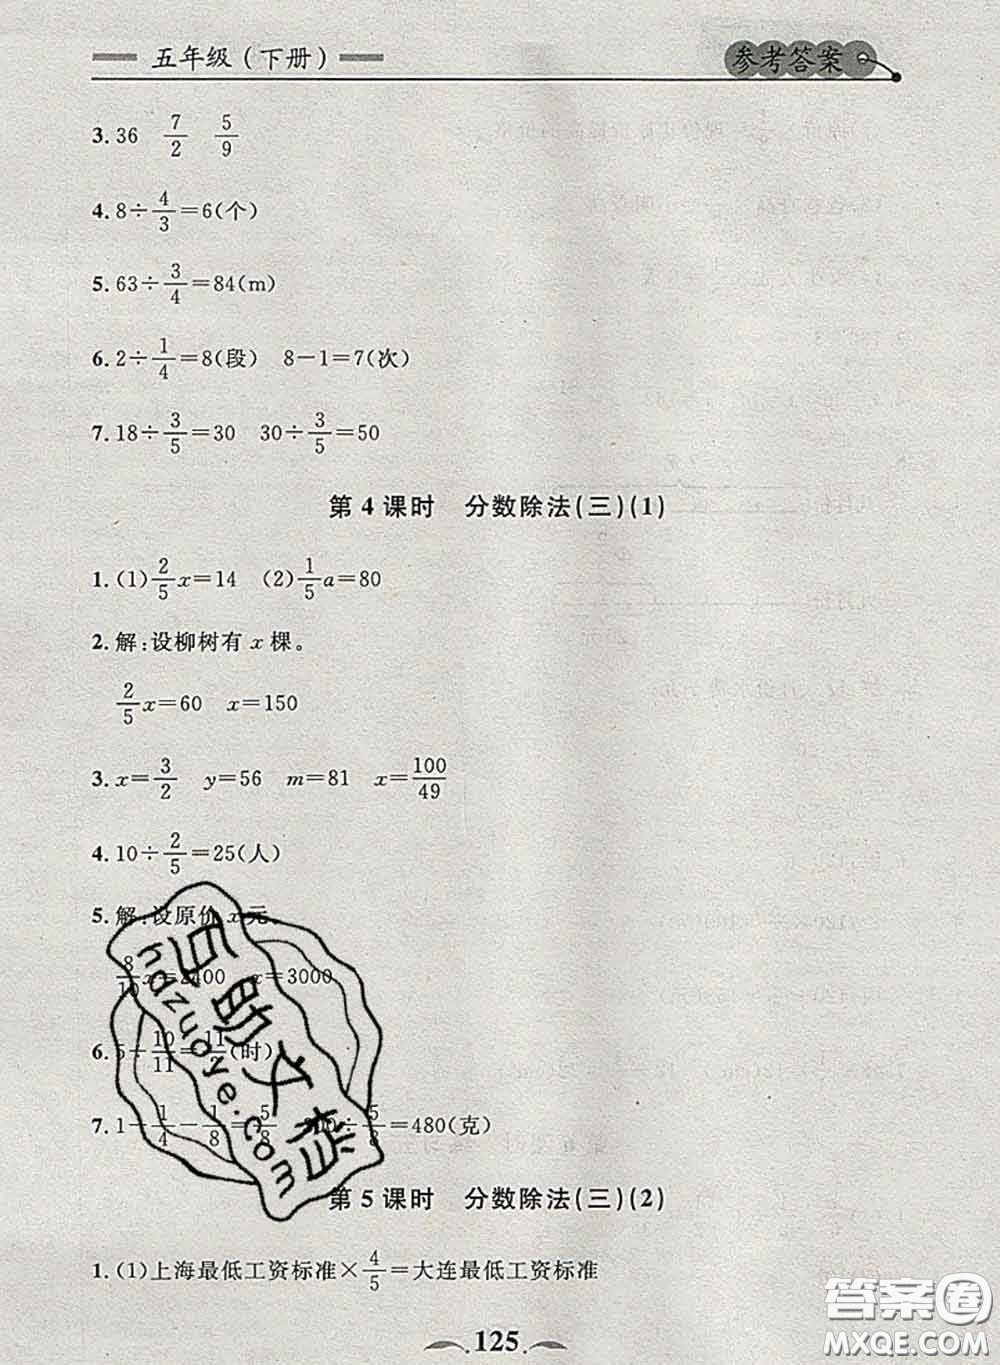 五年级(下册)
参考答案
3.36 7/2 5/9
4.8÷4/3=6(个)
5.63÷3/4=84(m)
6.2÷1/4=8(段) 8-1=7(次)
7.18÷3/5=30 30÷3/5=50
第4课时 分数除法(三)(1)
1.(1)2/5x=14 (2)1/5a=80
2.解:设柳树有x棵。
2/5x=60 x=150
3.x=3/2 y=56 m=81 x=100/49
4.10÷2/5=25(人)
5.解:设原价x元。
8/10x=2400 x=3000
6.5÷10/11=11/2(时)
7.1-1/4-1/8=5/8 300÷5/8=480(克)
第5课时 分数除法(三)(2)
1.(1)上海最低工资标准×4/5=大连最低工资标准
125
hdzuoye.com
答案圈
MXQE.COM